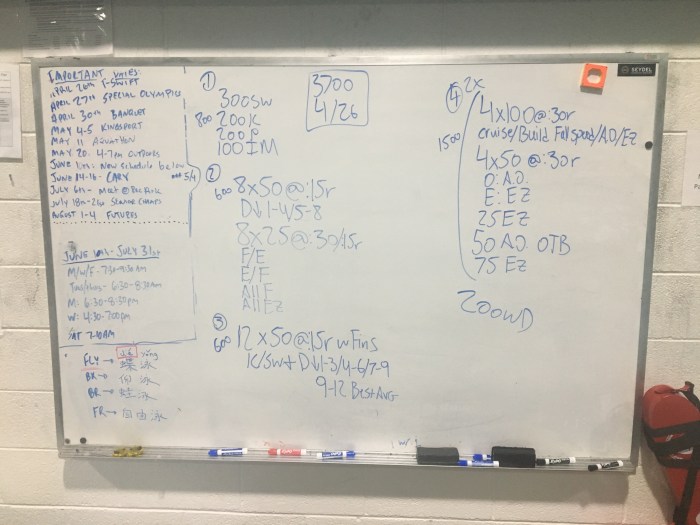 IMPORTANT DATES:
APRIL 26th T-SWIFT
APRIL 27th SPECIAL OLYMPICS
APRIL 30th BANQUET
MAY 4-5 KINGSPORT
MAY 11 AQUATHON
MAY 20 4-7pm OUTDOORS
JUNE New Schedule below
JUNE 14-16 CARY
JULY 6th - Meet @
July 18th- CHAMPS
AUGUST 1-4 FUTURES
5/4
JUNE - JULY 31st
M/W/F - 7:30-9:30AM
Tues/Thurs - 6:30-8:30AM
M: 6:30-8:30pm
W: 4:30-7:00pm
SAT 7-10AM
FLY → 蝶 泳
yǒng
BR → 仰 泳
BR → 蛙 泳
FR → 自由泳
①
3700
4/26
300SW
800 200K
200P
100IM
②
600 8x50@:15r
D↓1-4/5-8
8x25@:30/15r
F/E
E/F
All F
All EZ
③
600 12x50@:15r w Fins
K/SW+D↓1-3/4-6/7-9
9-12 Best Avg
④ 2x
1500
4x100@:30r
Cruise/Build Fullspeed/AO/EZ
4x50@:30r
O: A.O.
E: EZ
25 EZ
50 AO OTB
75 EZ
200WD
SEYDEL
EXPO